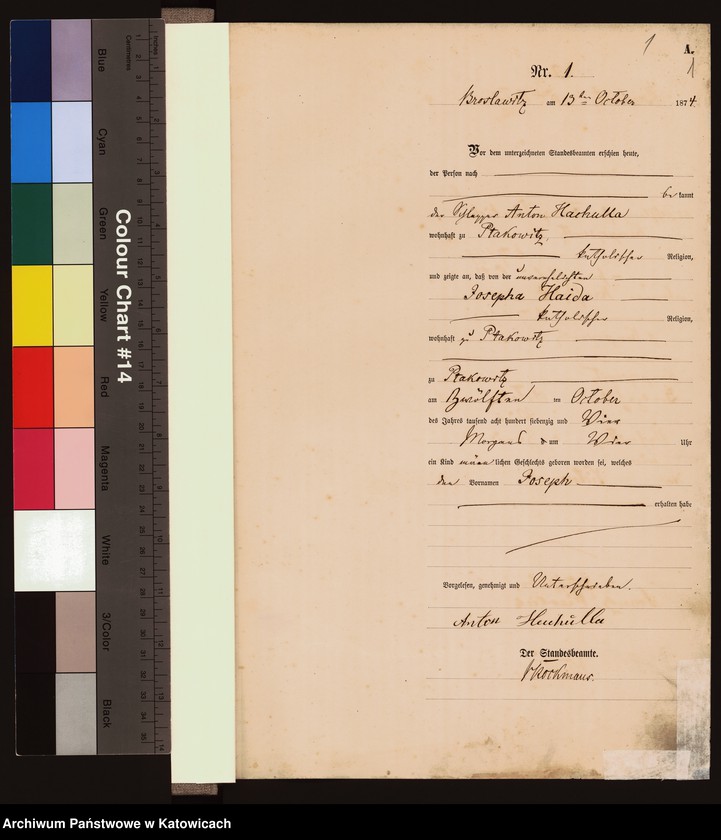 Blue
Cyan
Green
Yellow
Red
Magenta
White
3/Color
Black
Colour Chart #14
Centimetres
Inches
1
A.
1
Nr. 1.
Broslawitz am 13ten October 1874.
Vor dem unterzeichneten Standesbeamten erschien heute,
der Person nach
be kannt
der Anton Hachulla
wohnhaft zu Ptakowitz,
katholischer Religion,
und zeigte an, daß von der unverehelichten
Josepha Haida
katholischer Religion,
wohnhaft zu Ptakowitz
zu Ptakowitz
am Zwölften ten October
des Jahres tausend acht hundert siebenzig und Vier
Morgens um Vier Uhr
ein Kind männlichen Geschlechts geboren worden sei, welches
den Vornamen Joseph
erhalten habe
Vorgelesen, genehmigt und Unterschrieben.
Anton Hachulla
Der Standesbeamte.
Archiwum Państwowe w Katowicach